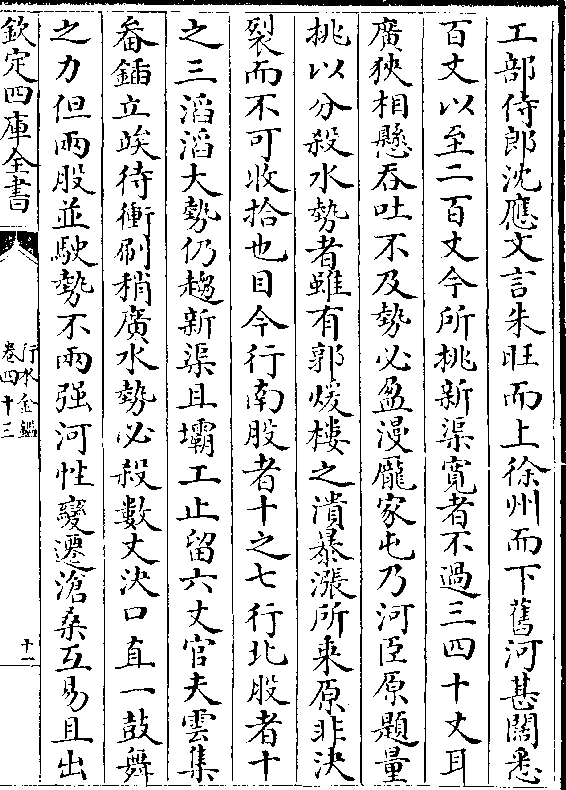 工部侍郎沈應文言朱旺而上徐州而下舊河甚闊悉
百丈以至二百丈今所挑新渠寬者不過三四十丈耳
廣狹相懸吞吐不及勢必盈漫龐家屯乃河臣原題量
挑以分殺水勢者雖有郭煖樓之潰暴漲所乘原非決
裂而不可收拾也目今行南股者十之七行北股者十
之三滔滔大勢仍趨新渠且壩工止留六丈官夫雲集
畚鍤立竢待衝刷稍廣水勢必殺數丈決口直一鼓舞
之力但兩股並駛勢不兩强河性變遷滄桑互易且出
欽定四庫全書
行水金鑑
卷四十三
十一